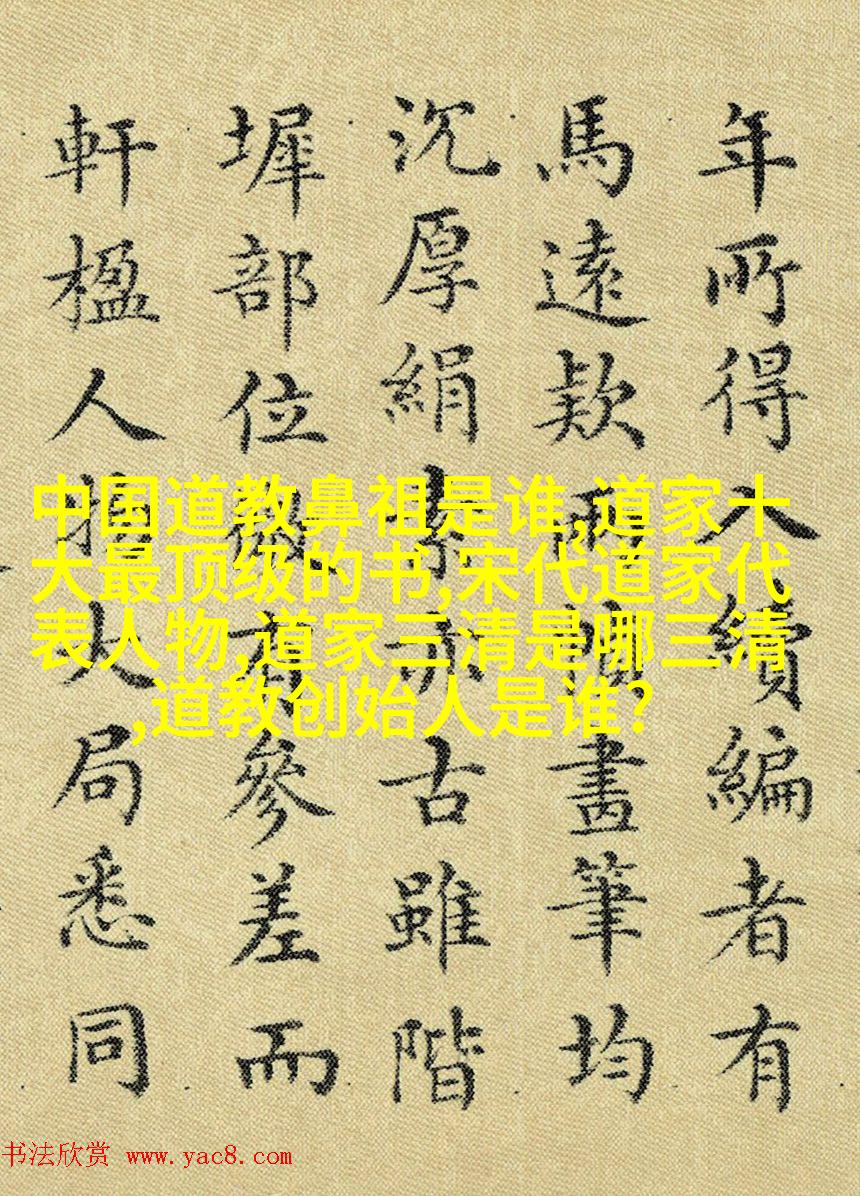 年所得入續編者有
馬遠欵兩幅畫筆均
沉厚絹素亦古雖階
墀部位微有參差而
軒楹人物大局悉同
中国道教鼻祖是谁,道家十
大最顶级的书,宋代道家代
表人物,道家三清是哪三清
,道教创始人是谁?
书法欣赏 www.yac8.com